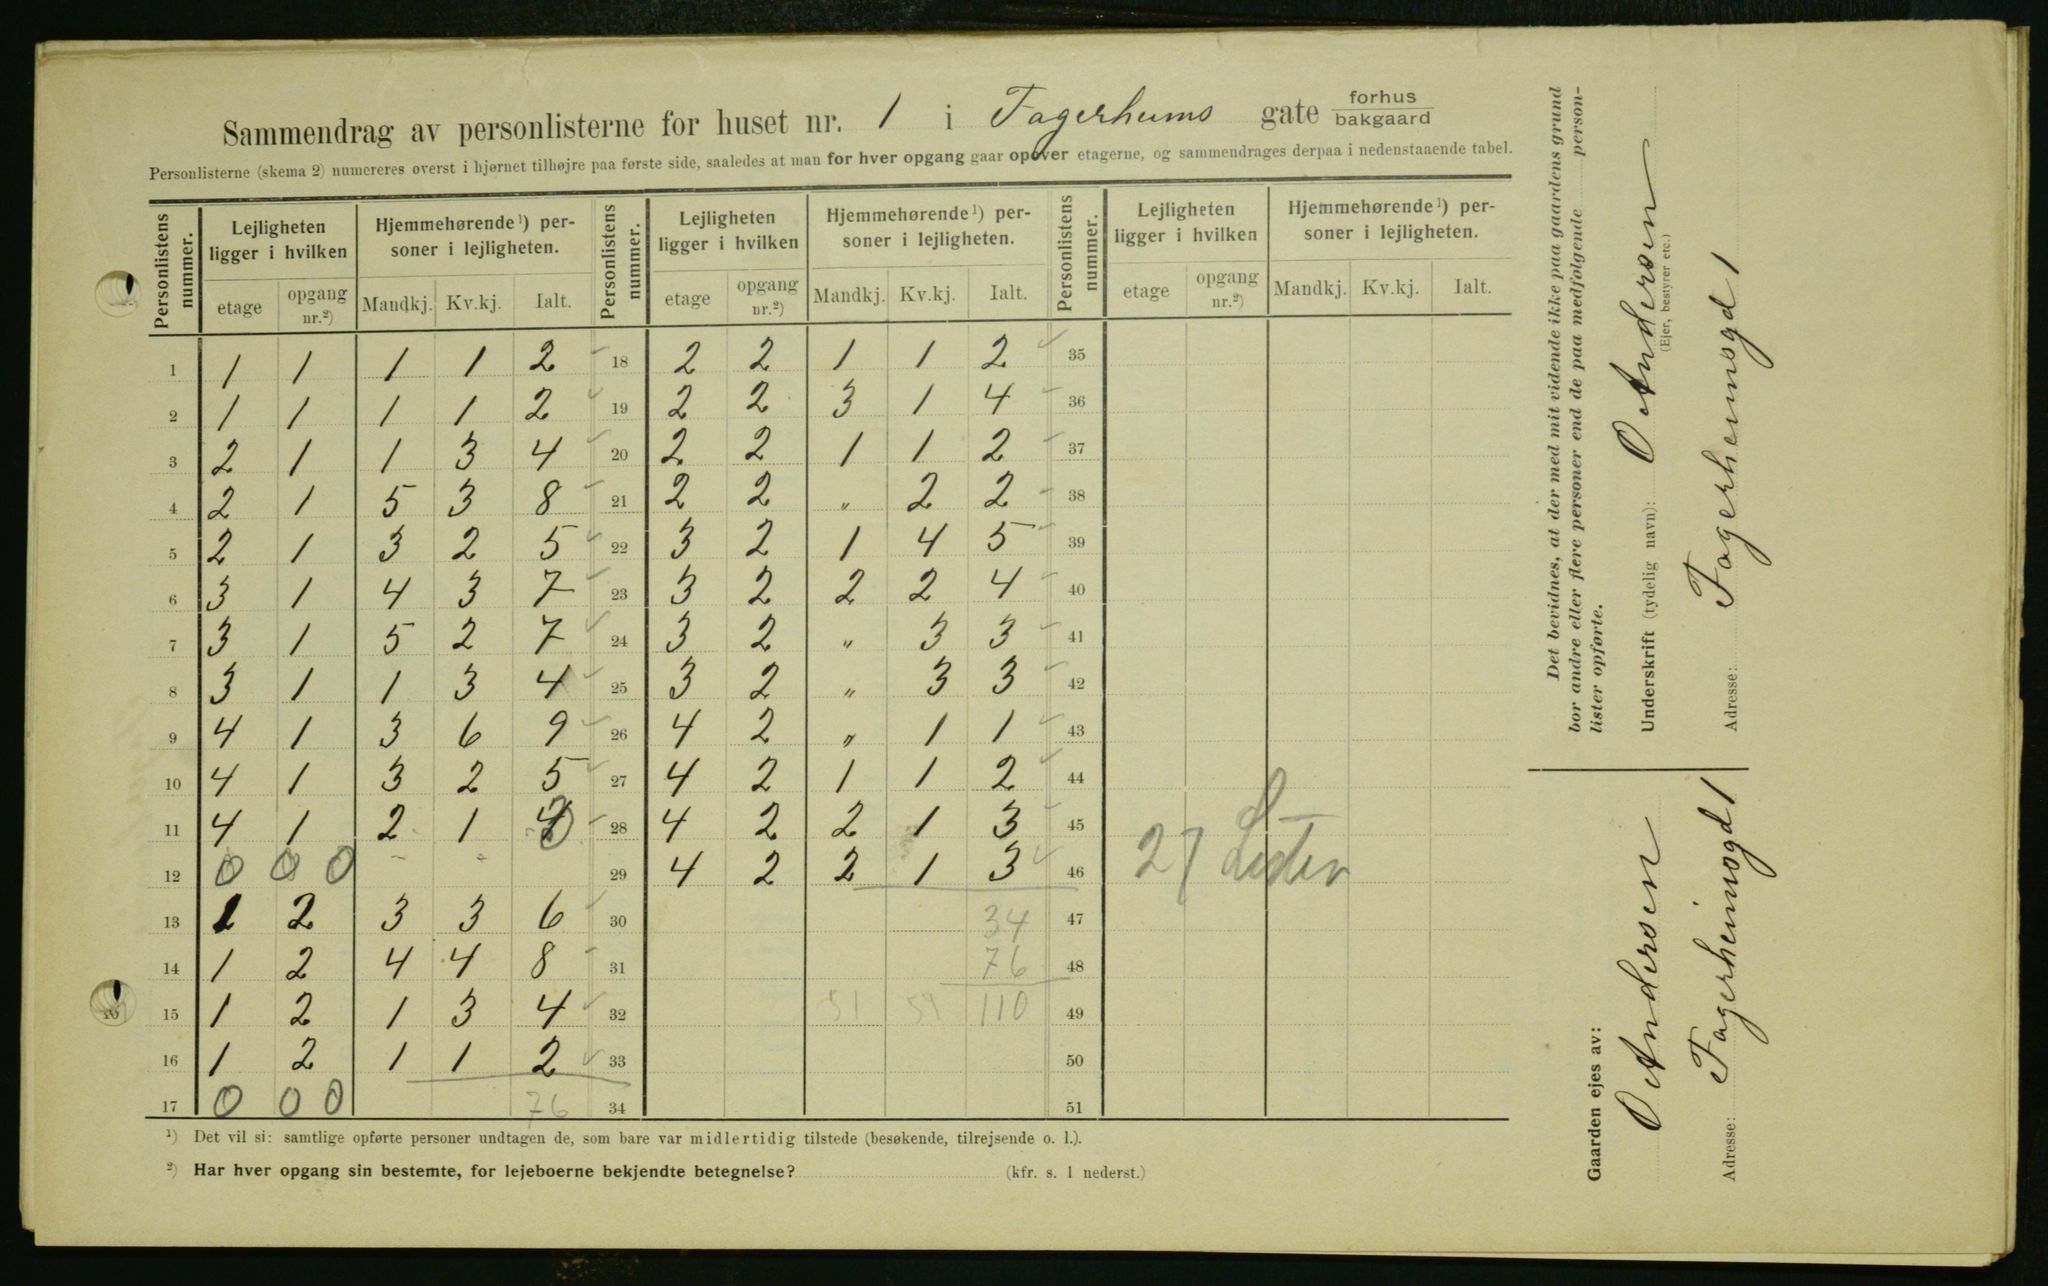 Sammendrag av personlisterne for huset nr. 1 i Fagerheims gate forhus bakgaard
Personlisterne (skema 2) numereres øverst i hjørnet tilhøjre paa første side, saaledes at man for hver opgang gaar opover etagerne, og sammendrages derpaa i nedenstaaende tabel.
Personlistens nummer. Lejligheten ligger i hvilken Hjemmehørende¹) personer i lejligheten. Personlistens nummer. Lejligheten ligger i hvilken Hjemmehørende¹) personer i lejligheten. Personlistens nummer. Lejligheten ligger i hvilken Hjemmehørende¹) personer i lejligheten.
etage opgang nr.²) Mandkj. Kv.kj. Ialt. etage opgang nr.²) Mandkj. Kv.kj. Ialt. etage opgang nr.²) Mandkj. Kv.kj. Ialt.
1 1 1 1 1 2 18 2 2 1 1 2 35
2 1 1 1 1 2 19 2 2 3 1 4 36
3 2 1 1 3 4 20 2 2 1 1 2 37
4 2 1 5 3 8 21 2 2 „ 2 2 38
5 2 1 3 2 5 22 3 2 1 4 5 39
6 3 1 4 3 7 23 3 2 2 2 4 40
7 3 1 5 2 7 24 3 2 „ 3 3 41
8 3 1 1 3 4 25 3 2 „ 3 3 42
9 4 1 3 6 9 26 4 2 „ 1 1 43
10 4 1 3 2 5 27 4 2 1 1 2 44
11 4 1 2 1 3 28 4 2 2 1 3 45
12 0 0 0 - - 29 4 2 2 1 3 46 27 Lister
13 1 2 3 3 6 30 34 47
14 1 2 4 4 8 31 76 48
15 1 2 1 3 4 32 51 59 110 49
16 1 2 1 1 2 33 50
17 0 0 0 76 34 51
¹) Det vil si: samtlige opførte personer undtagen de, som bare var midlertidig tilstede (besøkende, tilrejsende o. l.).
²) Har hver opgang sin bestemte, for lejeboerne bekjendte betegnelse? (kfr. s. 1 nederst.)
Det bevidnes, at der med mit vidende ikke paa gaardens grund
bor andre eller flere personer end de paa medfølgende person-
lister opførte.
Underskrift (tydelig navn): O Andersen
(Ejer, bestyrer etc.)
Adresse: Fagerheimsgd 1
Gaarden ejes av: O Andersen
Adresse: Fagerheimsgd 1